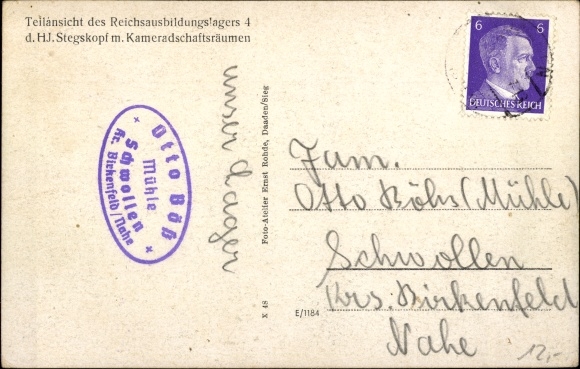 Teilansicht des Reichsausbildungslagers 4
d. HJ. Stegskopf m. Kameradschaftsräumen
6 6
DEUTSCHES REICH
Otto Böß
Mühle
Schwollen
Kr. Birkenfeld/Nahe
unser Laager
Foto-Atelier Ernst Rohde, Daaden/Sieg
X 48
E/1184
Fam.
Otto Böhs (Mühle)
Schwollen
Krs. Birkenfeld
Nahe
12,-